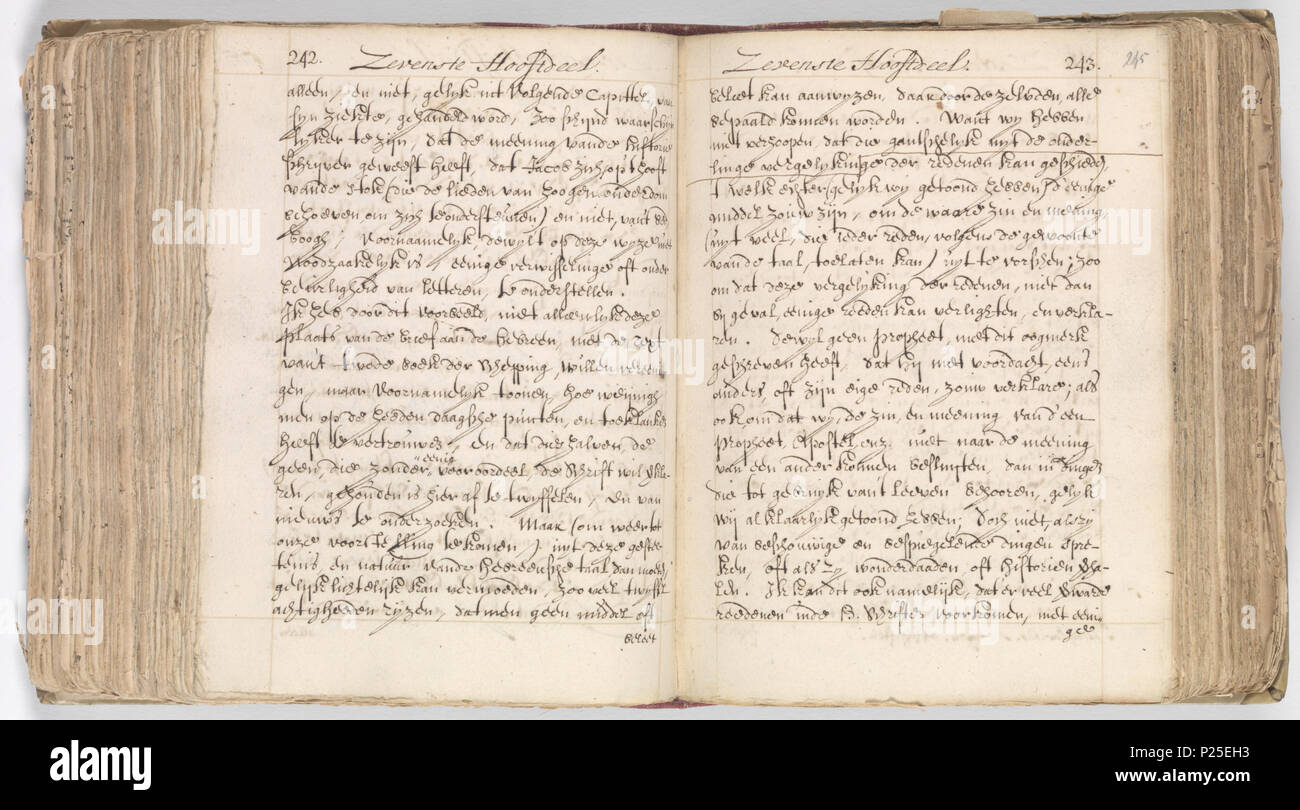 242. Zevenste Hooftdeel.
alleen, en niet, gelyk in't volgende Capittel, van
syn ziekte, gehandeld word, zoo schynd waarschyn
lyker te zyn, dat de meening vande Historie
schryver geweest heeft, dat Jacob zich op't hooft
vande stok (die de lieden van hoogen ouderdom
behoeven, om zich te ondersteunen) en niet, van't bed
boogh; voornaamelyk dewyl't op deze wyze niet
noodzaakelyk is, eenige verwisselinge oft onder
van letteren, te onderstellen.
Ik heb door dit voorbeeld, niet alleenlyk deze
plaats, van de brief aan de Hebreen, met de text
van't twede boek der Schepping, willen vereeni
gen, maar voornamelyk toonen, hoe weinigh
men op de hedendaagsche puncten, en toeklanken
heeft te vertrouwen, en dat dieshalven, de
geen, die zonder eenig vooroordeel, de Schrift wil
ren, gehouden is hier af te twyffelen, en van
nieuws te onderzoeken. Maar (om weer tot
onze voorstelling te komen) uyt deze geste
tenis en natuur vande Hebreensche taal kan
gelyk lichtelyk kan vermoeden, zoo veel twyffel
achtigheden ryzen, dat men geen middel oft
beleet
Zevenste Hooftdeel. 243. 245
beleet kan aanwyzen, daar door de zelven, alle
bepaald konnen worden. Want wy hebben
niet te hoopen, dat dit gantschelyk uyt de onder-
linge vergelykinge der redenen kan geschieden,
't welk echter (gelyk wy getoond hebben) d'eenige
middel zouw zyn, om de waare zin en meening,
(uyt veel, die ieder reden, volgens de gewoonte
vande taal, toelaten kan) uyt te vorschen; zoo
om dat deze vergelyking der redenen, niet dan
by geval, eenige reeden kan verlighten, en verkla-
ren. Dewyl geen Propheet, met dit oogmerk
geschreven heeft, dat hy met voordacht, eens
anders, oft zyn eige reden, zouw verklare; als
ook om dat wy, de zin, en meening van d'een
Propheet, Apostel, enz. niet naar de meening
van een ander konnen besluyten, dan in dingen
die tot gebruyk van't leeven behooren, gelyk
wij al klaarlyk getoond hebben; doch niet, als zy
van beschouwige en bespiegelende dingen spre-
ken, oft als zy wonderdaaden, oft historien
len. Ik kan dit ook namelijk, dat'er veel
reedenen inde H. Schriften voorkomen, met
ge